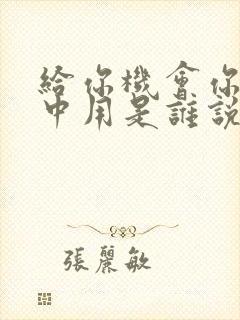 給你機會你
中用是誰說
張麗敏